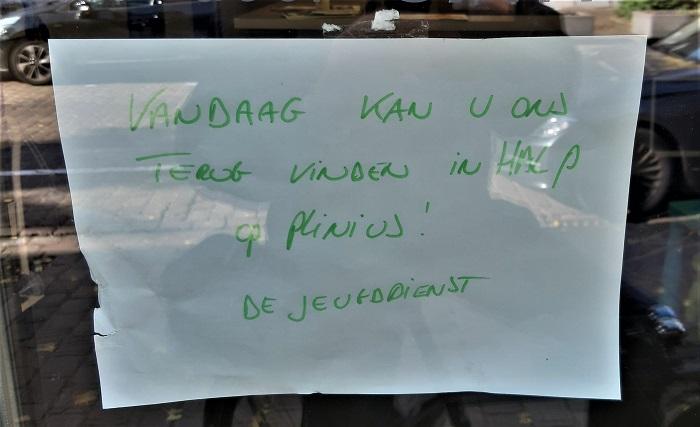 VANDAAG KAN U ONS
TERUG VINDEN IN HAL P
op PliNiUS!
DE JEUGDDIENST